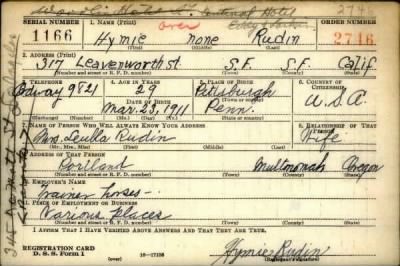 2746
SERIAL NUMBER 1. NAME (Print) ORDER NUMBER
over
1166 Hymie none Rudin 2746
(First) (Middle) (Last)
2. ADDRESS (Print)
317 Leavenworth st S.F. S.F. Calif
(Number and street or R. F. D. number) (Town) (County) (State)
3. TELEPHONE 4. AGE IN YEARS 5. PLACE OF BIRTH 6. COUNTRY OF CITIZENSHIP
Ordway 9821 29 Pittsburgh
DATE OF BIRTH (Town or county)
Mar. 23, 1911 Penn. U.S.A.
(Exchange) (Number) (Mo.) (Day) (Yr.) (State or country)
7. NAME OF PERSON WHO WILL ALWAYS KNOW YOUR ADDRESS 8. RELATIONSHIP OF THAT PERSON
Mrs. Rudin Wife
(Mr., Mrs., Miss) (First) (Middle) (Last)
9. ADDRESS OF THAT PERSON
Portland Multnomah Oregon
(Number and street or R. F. D. number) (Town) (County) (State)
10. EMPLOYER'S NAME
trainer horses—
11. PLACE OF EMPLOYMENT OR BUSINESS
Various places
(Number and street or R. F. D. number) (Town) (County) (State)
I AFFIRM THAT I HAVE VERIFIED ABOVE ANSWERS AND THAT THEY ARE TRUE.
REGISTRATION CARD
D. S. S. Form 1 16—17105 Hymie Rudin
(Registrant's signature)